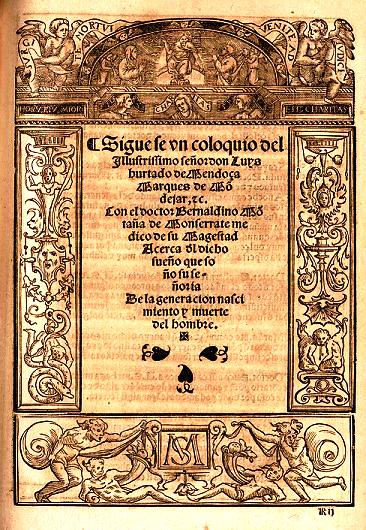 SVRGI
TE MORTVI
VENITE AD
IVDICI
¶ Sigue se vn coloquio del
Illustrissimo señor don Luys
hurtado de Mendoça
Marques de Mõ
dejar. τc.
Con el doctor Bernaldino Mõ
taña de Monserrate me
dico de su Magestad
Acerca dl dicho
sueño que so
ño su se-
ñoria
De la generacion nasci
miento y muerte
del hombre.